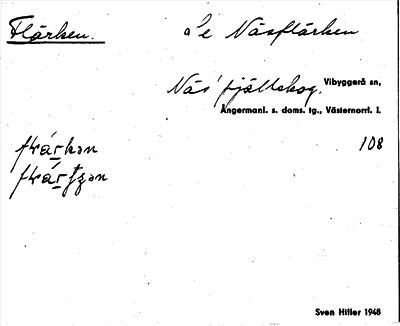 Flärken.
Se Näsflärken
Näs' fjällskog. Vibyggerå sn,
Ångermanl. s. doms. tg., Västernorrl. l.
108
Sven Hitler 1948